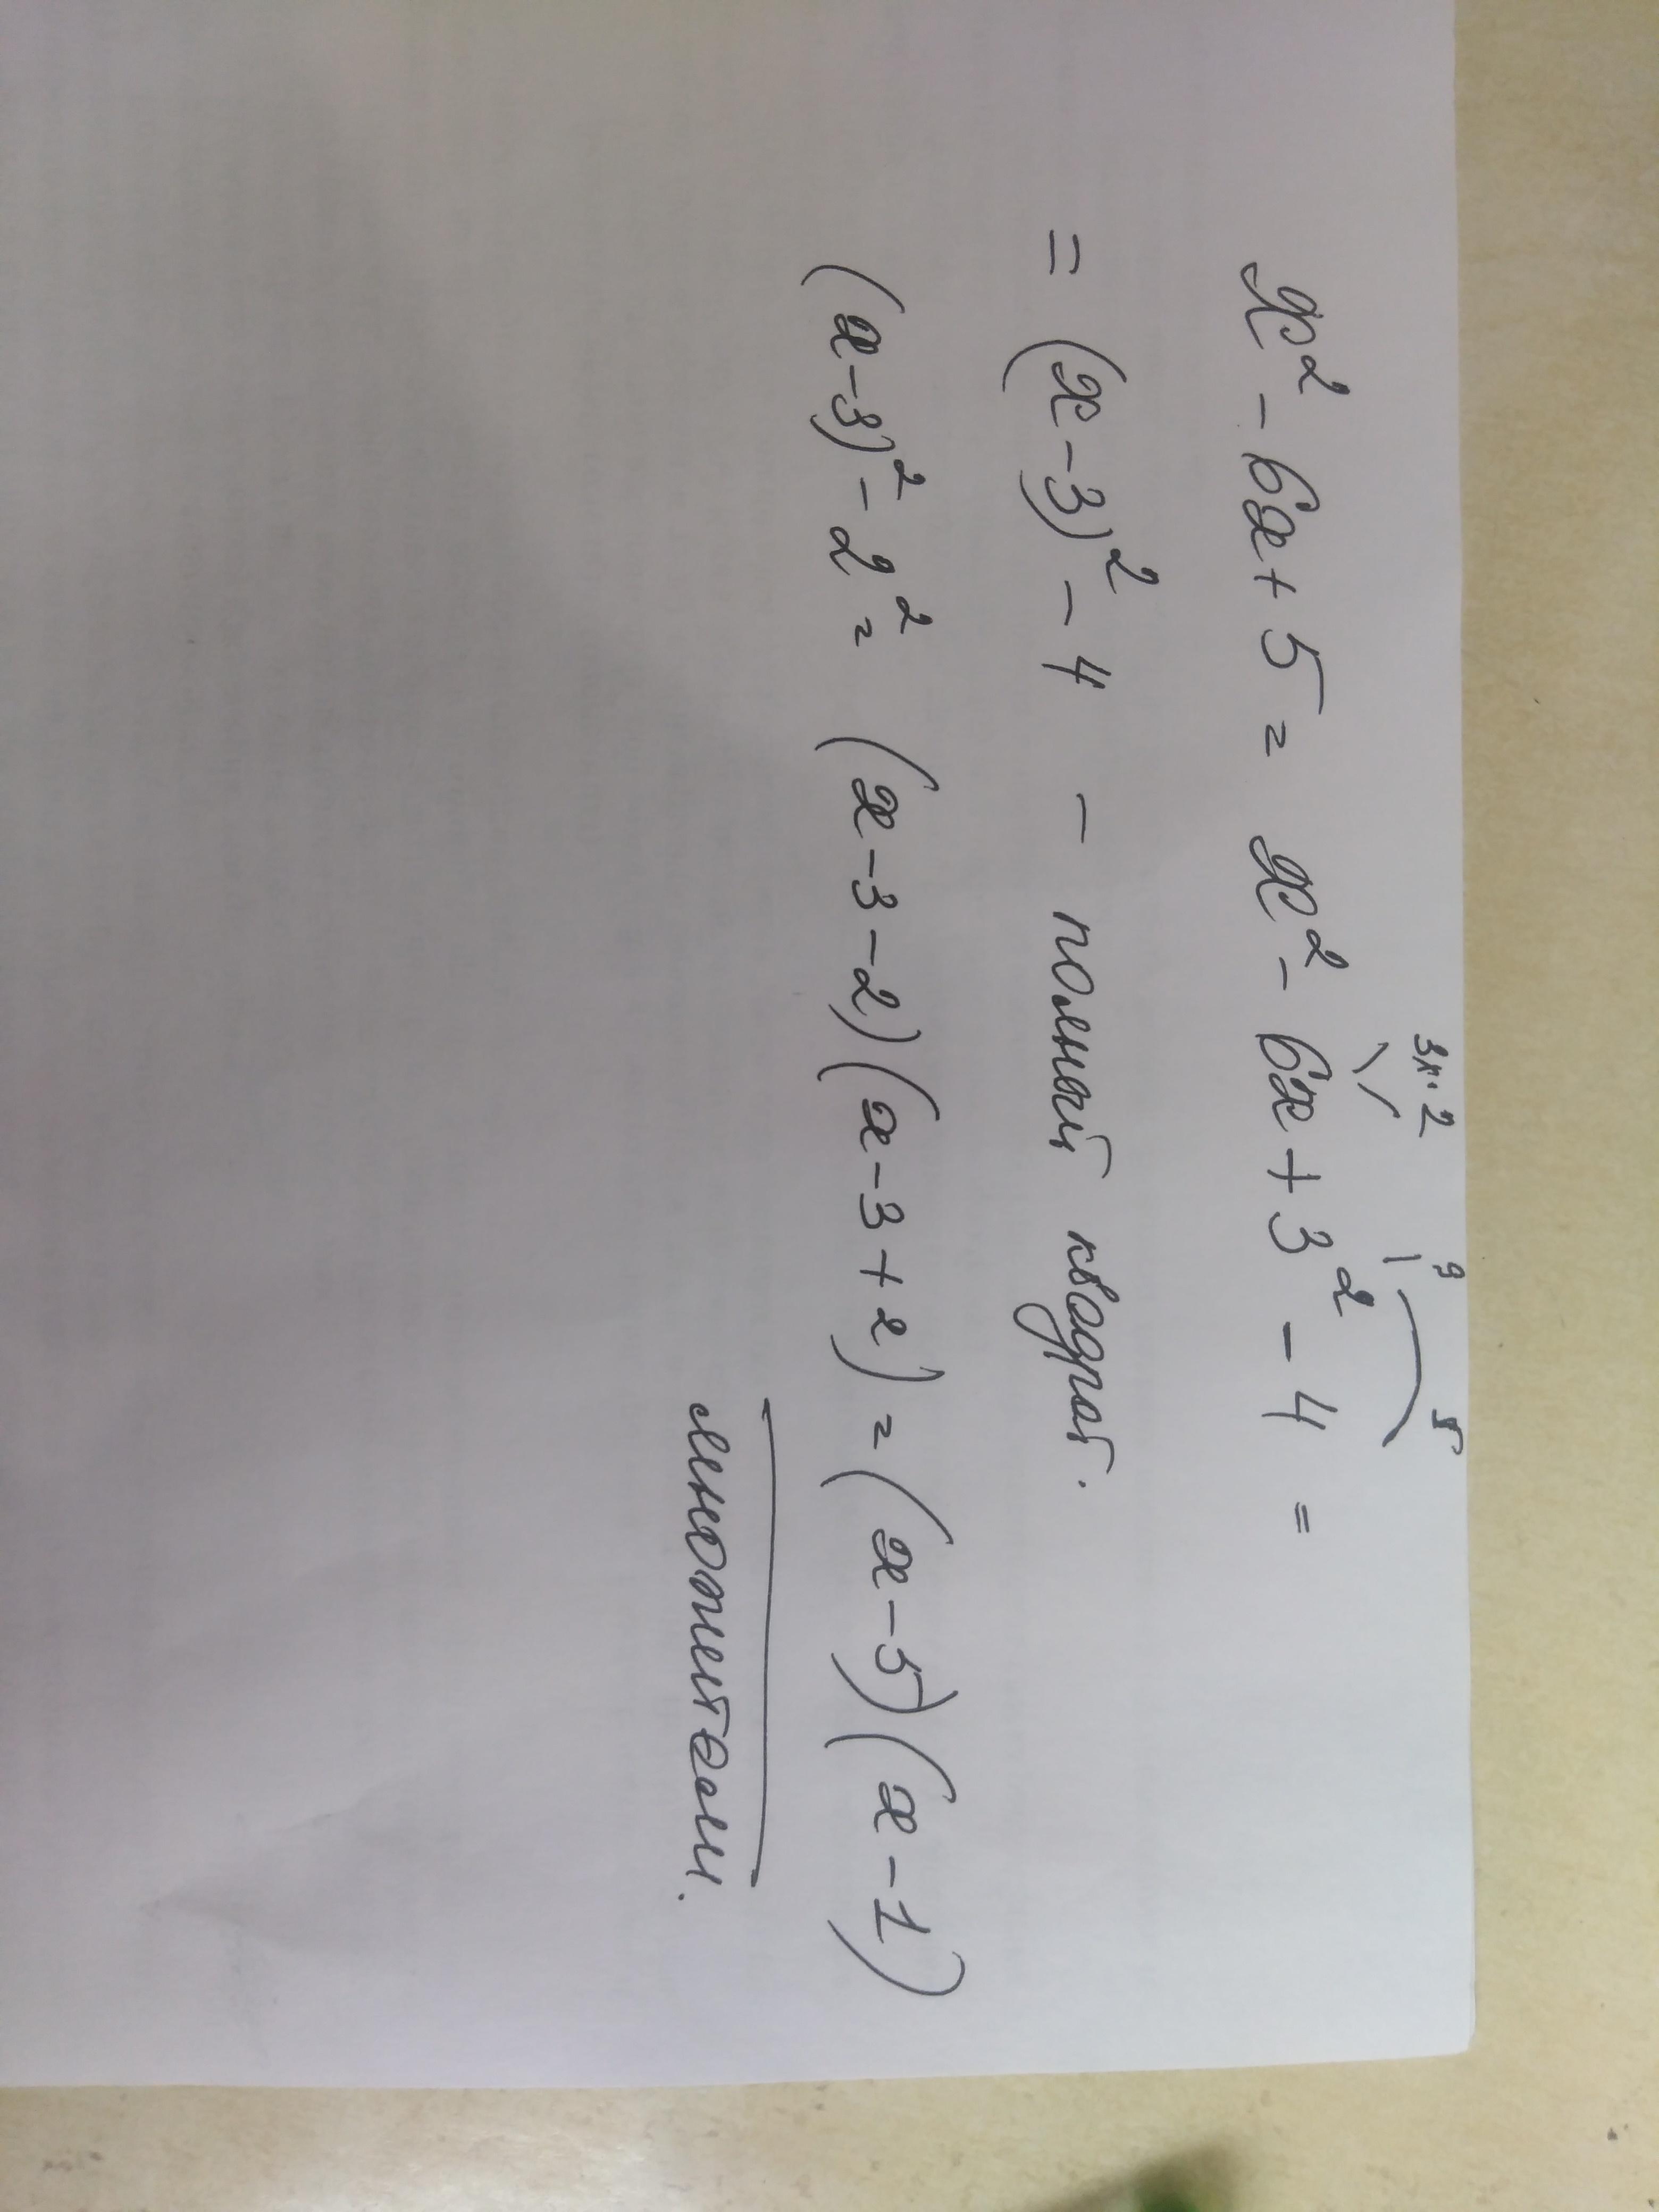 3x·2 9 5
x² - 6x + 5 = x² - 6x + 3² - 4 =
= (x - 3)² - 4 - полный квадрат.
(x - 3)² - 2² = (x - 3 - 2)(x - 3 + 2) = (x - 5)(x - 1)
множители.